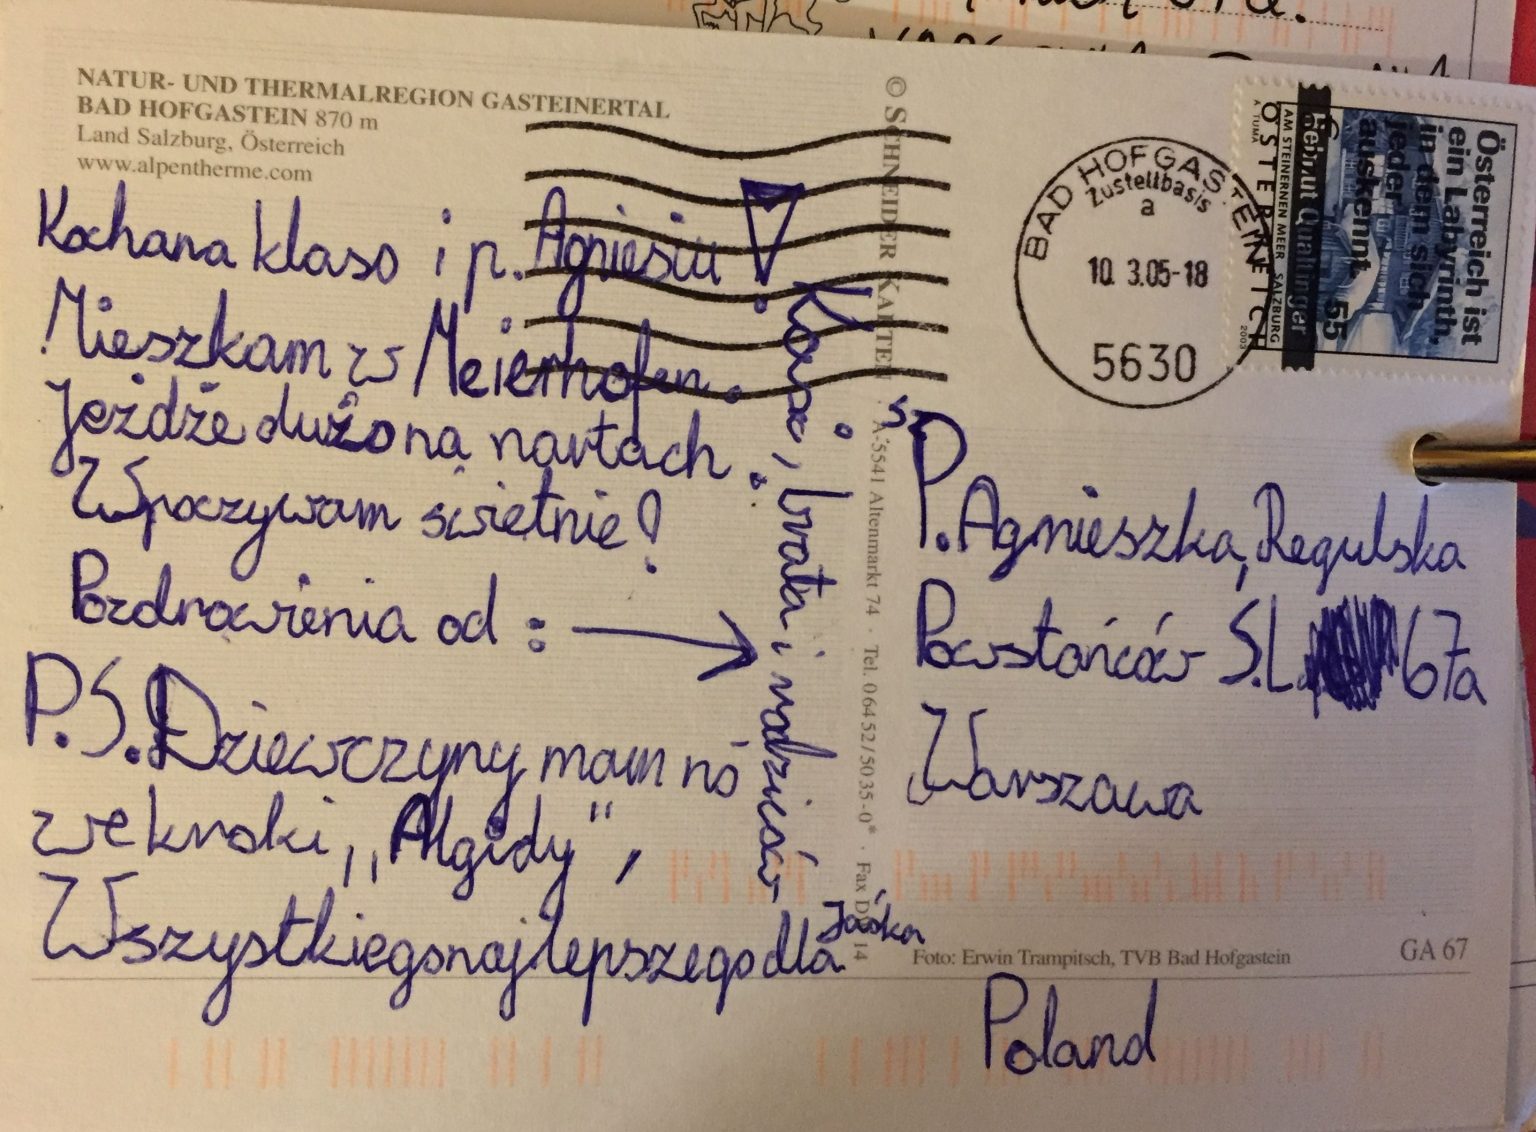 NATUR- UND THERMALREGION GASTEINERTAL
BAD HOFGASTEIN 870 m
Land Salzburg, Österreich
www.alpentherme.com
Kochana klaso i p. Agniesiu!
Mieszkam w Meierhofen.
Jeżdże dużo na nartach.
Wpoczywam świetnie!
Pozdrowienia od:
brata i rodziców
P.S. Dziewczyny mam no
we kroski, „Algidy”,
Wszystkiego najlepszego dla
Jaśka
© SCHNEIDER KARTEN · A-5541 Altenmarkt 74 · Tel. 06452/5035-0* · Fax DW 14
BAD HOFGASTEIN
Zustellbasis
a
10. 3.05-18
5630
Österreich ist
ein Labyrinth,
in dem sich
jeder
auskennt.
Helmut Qualtinger
€ 55
AM STEINERNEN MEER SALZBURG
ÖSTERREICH
A. TUMA
2003
Sz
P. Agnieszka, Regulska
Powstańców S.L. 67a
Warszawa
Foto: Erwin Trampitsch, TVB Bad Hofgastein
GA 67
Poland